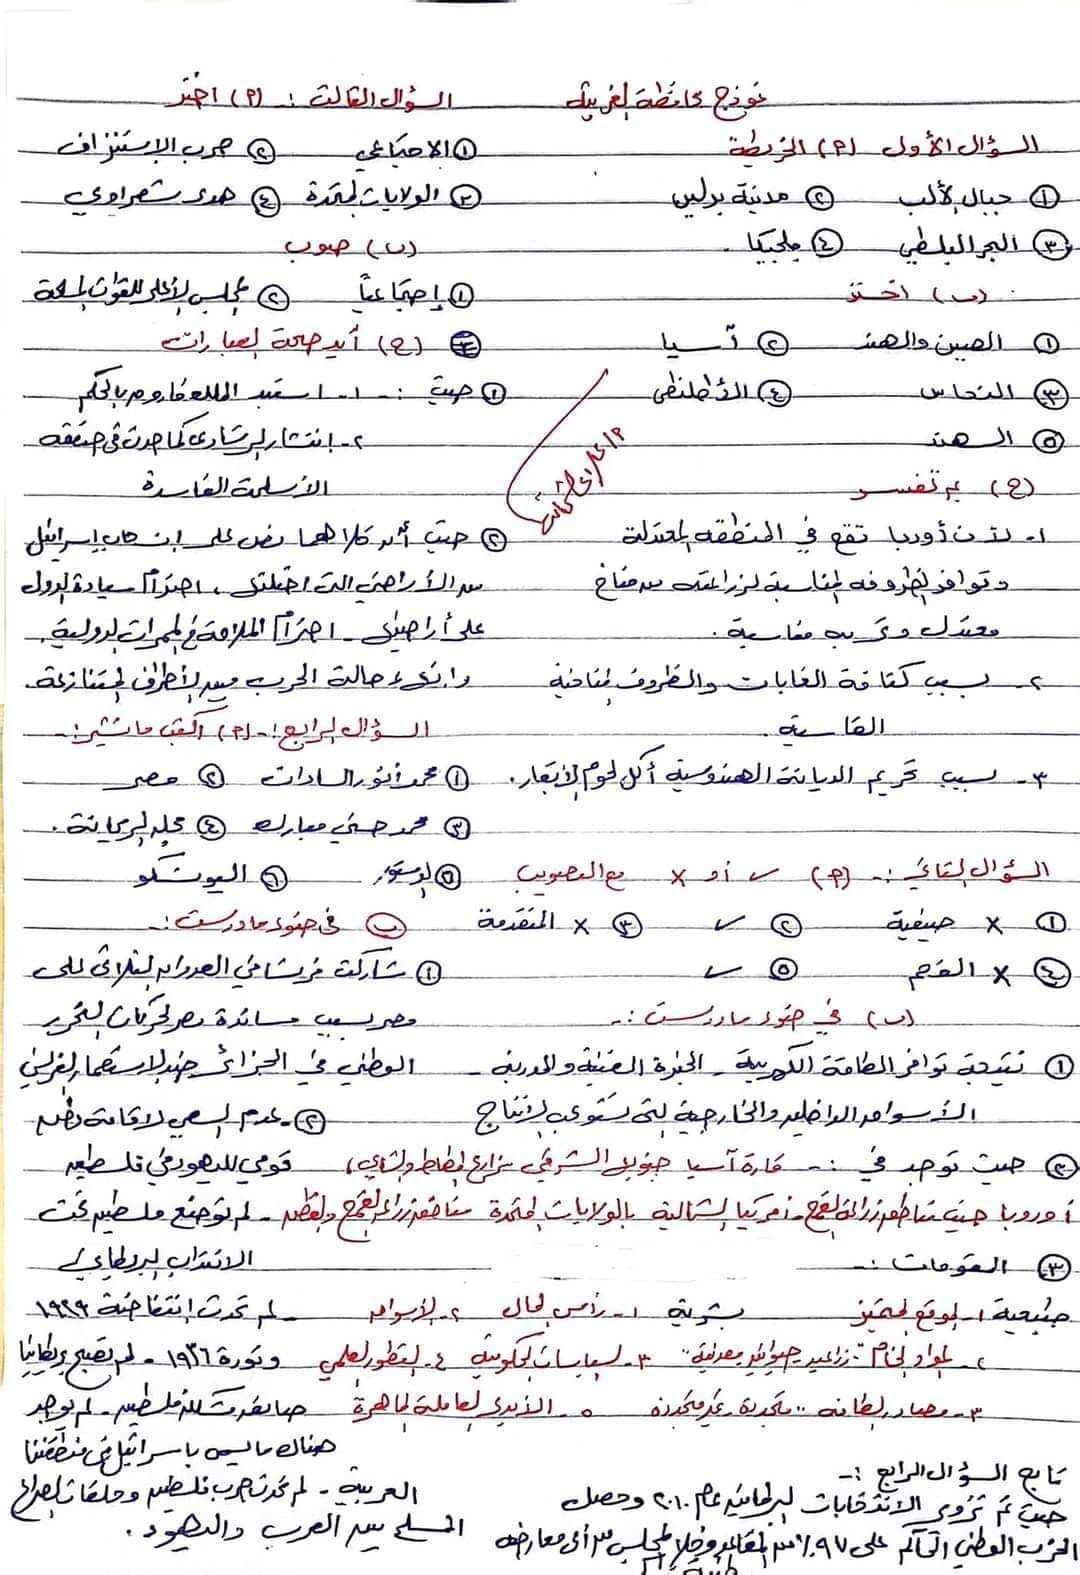 نموذج محافظة الغربية
السؤال الأول (م) الخريطة
① جبال الألب ② مدينة برلين
③ البحر البلطي ④ بلجيكا.
(ب) اختر
① الصين والهند ② آسيا
③ النحاس ④ الأطلنطي
⑤ الهند
(ج) بم تفسر
١- لأن أوربا تقع في المنطقة المعتدلة
وتوافر الظروف المناسبة لزراعته من مناخ
معتدل وتربة مناسبة.
٢- بسبب كثافة الغابات والظروف المناخية
القاسية.
٣- بسبب تحريم الديانة الهندوسية أكل لحوم الأبقار.
السؤال الثاني :- (م) ✓ أو X مع التصويب
① X صيفية ② ✓ ③ X المتقدمة
④ X الفحم ⑤ ✓
(ب) في ضوء ما درست :-
① نتيجة توافر الطاقة الكهربية - الخبرة الفنية والمدربة -
الأسواق الداخلية والخارجية التي تستوعب الإنتاج
② حيث توجد في :- قارة آسيا جنوب الشرقي مزارع المطاط والشاي)
أوروبا حيث مناطق زراعة القمح - أمريكا الشمالية بالولايات المتحدة مناطق زراعة القمح والقطن
③ المقومات :-
طبيعية ١- الموقع المتميز بشرية ١- رأس المال ٢- الأسواق
٢- المواد الخام "زراعية حيوانية معدنية" ٣- السياسات الحكومية ٤- التطور العلمي
٣- مصادر الطاقة "متجددة - غير متجددة" ٥- الأيدي العاملة الماهرة
تابع السؤال الرابع :-
حيث تم تزوير الانتخابات البرلمانية عام ٢٠١٠ وحصل
الحزب الوطني الحاكم على ٩٧٪ من المقاعد وخلا المجلس من أي معارضة
السؤال الثالث :- (م) اختر
① الاجتماعي ② حرب الاستنزاف
③ الولايات المتحدة ④ هدى شعراوي
(ب) صوب
① إجتماعياً ② المجلس الأعلى للقوات المسلحة
(ج) أيد صحة العبارات
① حيث :- ١- استبد الملك فاروق بالحكم
٢- انتشار الرشاوى كما حدث في صفقة
الأسلحة الفاسدة
② حيث أن كلاهما نص على انسحاب إسرائيل
من الأراضي التي احتلتها، احترام سيادة الدول
على أراضيها - احترام الملاحة في الممرات الدولية.
وإنهاء حالة الحرب بين الأطراف المتنازعة.
السؤال الرابع :- (م) اكتب ما تشير :-
① محمد أنور السادات ② مصر
③ محمد حسني مبارك ④ مجلة الريحانة.
⑤ الدستور ⑥ اليونسكو
(ب) في ضوء ما درست :-
① شاركت فرنسا في العدوان الثلاثي على
مصر بسبب مساندة مصر لحركات التحرر
الوطني في الجزائر ضد الاستعمار الفرنسي
② - عدم السعي لاقامة وطن
قومي لليهود في فلسطين
- لم توضع فلسطين تحت
الانتداب البريطاني/
- لم تحدث إنتفاضة ١٩٢٩
وثورة ١٩٣٦ - لم تصبح بريطانيا
- لم يوجد
هناك ما يسمى بإسرائيل في منطقتنا
العربية - لم تحدث حرب فلسطين وحلقات الصراع
المسلح بين العرب واليهود.